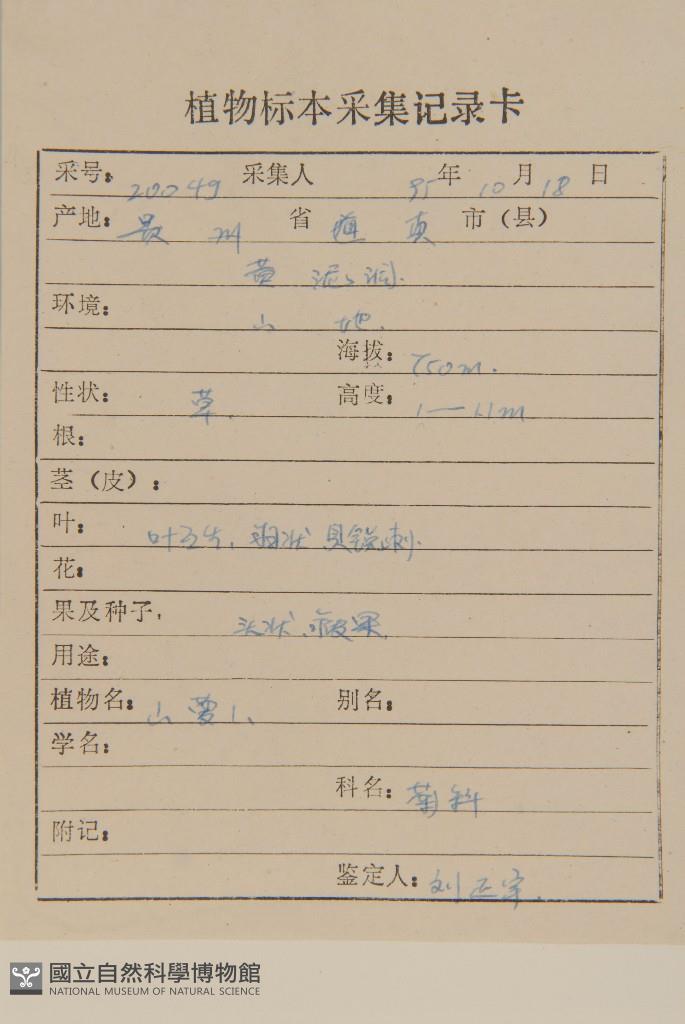 植物标本采集记录卡
采号: 20049 采集人 95年10月18日
产地: 贵州 省 道真 市(县)
黄泥洞.
环境: 山地.
海拔: 750m.
性状: 草. 高度: 1—1.1m
根:
茎(皮):
叶: 叶互生, 具锐刺.
花:
果及种子, 头状,瘦果.
用途:
植物名: 山萝卜 别名:
学名:
科名: 菊科
附记:
鉴定人: 刘正宇.
國立自然科學博物館
NATIONAL MUSEUM OF NATURAL SCIENCE